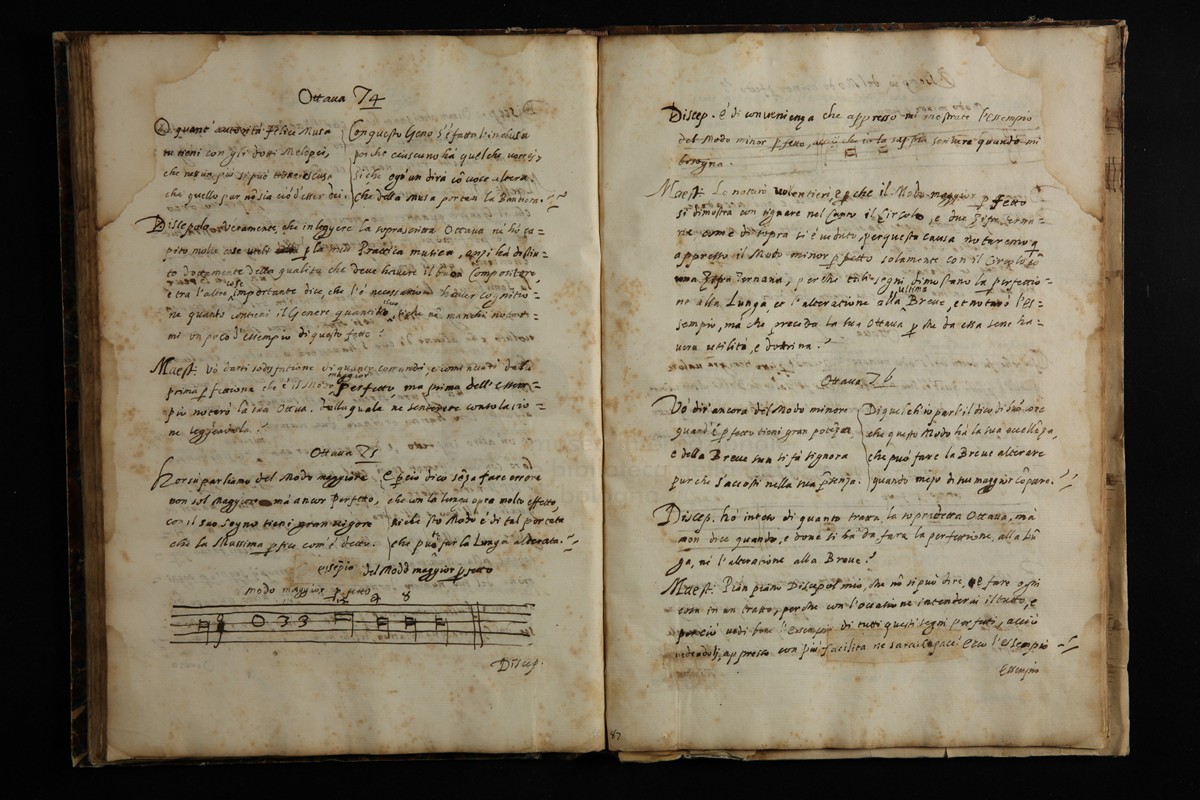 Ottava 74
O quant' autorità Felice Musa
tu tieni con gli dotti Melopei,
che nessun più si può
che quello pur non sia ciò d'esser dei.
Con questo Geno s'è fatta l'inchiusa
perche ciascuno hà quelche
si che ogn'un dirà cō voce altera
che della Musa portan la Bandiera.
Discepolo. Veramente, che in leggere la sopradetta Ottava ne hò ca=
pito molte cose utili p la mia Prattica musica, anzi hà distin=
to dottamente della qualità che deve havere il buon Compositore,
e trà l'altre cose importante dice, che l'è necessario haver cognitio=
ne quanto contieni il Genere quantile
mi un poco d'essempio di questo fatto.
Maest. Vò darti sodisfatione di quanto comandi, e cominciarò dalla
prima pfettione che è il Modo maggior perfetto, ma prima dell'essem=
pio noterò la sua Ottava, dalla quale ne sentirete consolatio=
ne leggendola.
Ottava 75
Horsù parliamo del Modo maggiore
non sol Maggiore mà ancor Perfetto,
con il suo segno tieni gran vigore
che la Massima pfice com'è detto.
E pciò dico sēza fare errore
che con la Lunga opra molto effetto,
siche sto Modo è di tal portata
che può far la Lunga alterata.
esēpio del Modo maggior pfetto
modo maggior pfetto 4 8
O 3 3
Discep.
Discep. è di convenienza che appresso mi mostrate l'Essempio
del Modo minor pfetto, acciò che io lo sappia sentire quando mi
besogna.
Maest. Lo notarò volentieri, e pche il Modo maggior pfetto
si dimostra con signare nel Canto il Circolo, e due Zifre terna=
rie come di sopra si è veduto, per questa causa notaremo q
appresso il Modo minor pfetto solamente con il Circolo, cō
una Zifra Ternaria, perche tali segni dimostano la perfettio=
ne alla Lunga, et l'alteratione alla ultima Breve, et notarò l'es=
sempio, mà che preceda la sua Ottava p che da essa sene ha=
verà utilità, e dottrina.
Ottava 76
Vò dir' ancora del Modo minore
quand'è pfetto tieni gran potēza
e della Breve sun si fà signora
pur che s'accosti nella sua psenza.
Di quel ch'io parli
che questo Modo hà la sua eccellēza,
che può fare la Breve alterare
quando mezo di due maggior cōpare.
Discep. hò inteso di quanto tratta la sopradetta Ottava, mà
non dice quando, e dove si hà da fare la perfettione, alla Lū
ga, nè l'alteratione alla Breve.
Maest. Pian piano Discepol mio, che nō si può dire, e fare ogni
cosa in un tratto, perche con l'occasione intenderai il tutto, e
perciò vedi bene l'Essempio di tutti questi segni perfetti, acciò
vedendoli appresso con più facilità ne sarai capace: Ecco l'essempio
Essempio
87